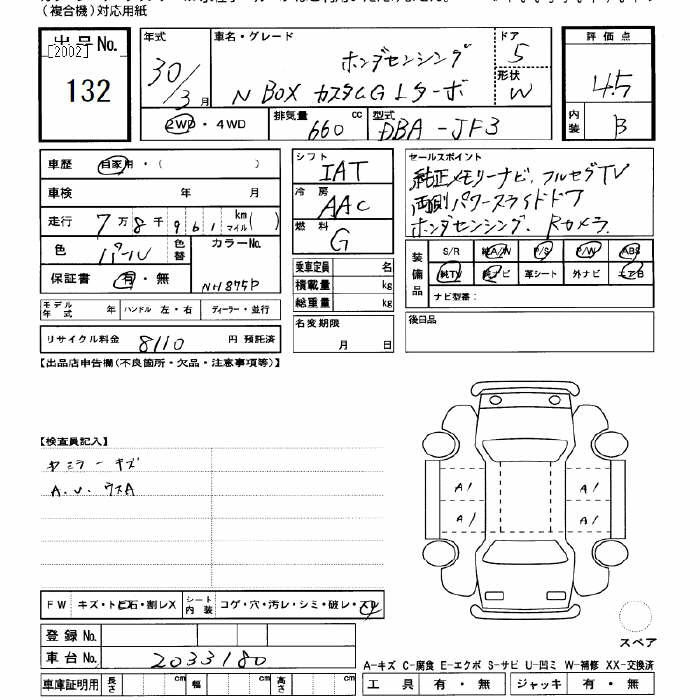 （複合機）対応用紙
出品No.
[2002]
132
年式
30/3月
車名・グレード
ホンダセンシング
N BOX カスタムG Lターボ
ドア
5
形状
W
評価点
4.5
内装
B
2WD・4WD
排気量 660 cc
型式 DBA-JF3
車歴 自家用・（ ）
車検 年 月
走行 7万8千961km マイル( )
色 パール 色替 カラーNo. NH875P
保証書 有・無
モデル年式 年 ハンドル 左・右 ディーラー・並行
リサイクル料金 8110 円 預託済
シフト IAT
冷房 AAC
燃料 G
乗車定員 名
積載量 kg
総重量 kg
名変期限
月 日
セールスポイント
純正メモリーナビ、フルセグTV
両側パワースライドドア
ホンダセンシング、Rカメラ
装備品
S/R 純A/W P/S P/W ABS
純TV 純ナビ 革シート 外ナビ エアB
ナビ型番：
後日品
【出品店申告欄（不良箇所・欠品・注意事項等）】
【検査員記入】
キズ
A.U. ウスA
A1 A1
A1 A1
FW キズ・トビ石・割レX シート内装 コゲ・穴・汚レ・シミ・破レ・スレ
登録No.
車台No. 2033180
車庫証明用 長さ cm 幅 cm 高さ cm
スペア
A-キズ C-腐食 E-エクボ S-サビ U-凹ミ W-補修 XX-交換済
工具 有・無 ジャッキ 有・無